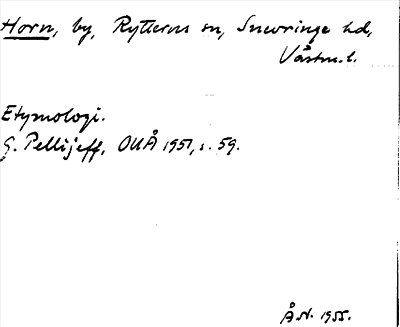 Horn, by, Rytterns sn, Snevringe hd,
Västm. l.
Etymologi.
G. Pellijeff, OUÅ 1951, s. 59.
Å. N. 1955.